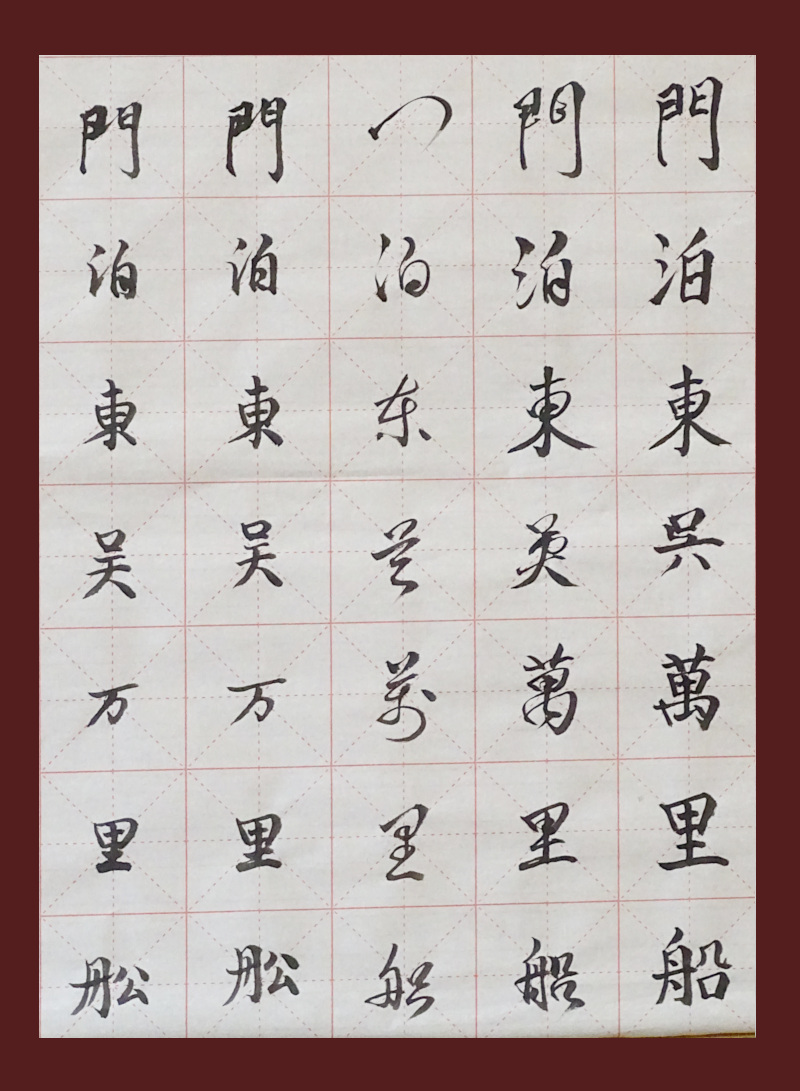 門泊東呉萬里船
門泊東吴萬里船
门泊东吴萬里船
門泊東吴万里舩
門泊東吴万里舩